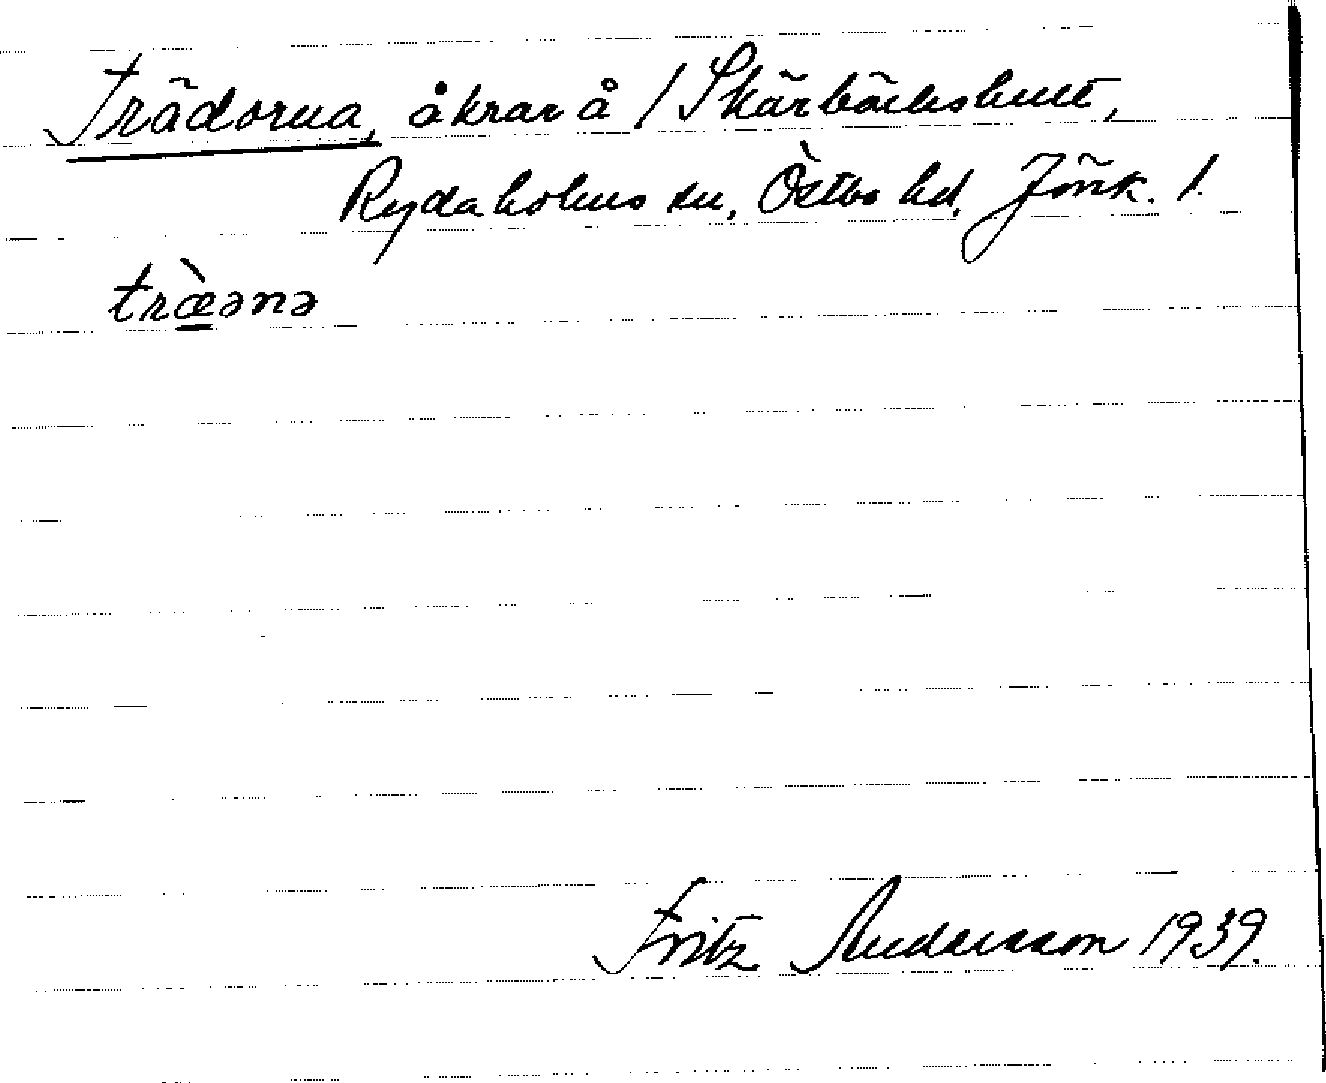 Trädorna, åkrar å / Skärbäckshult,
Rydaholms sn, Östbo hd, Jönk. l.
træ̀ənə
Fritz Andersson 1939.